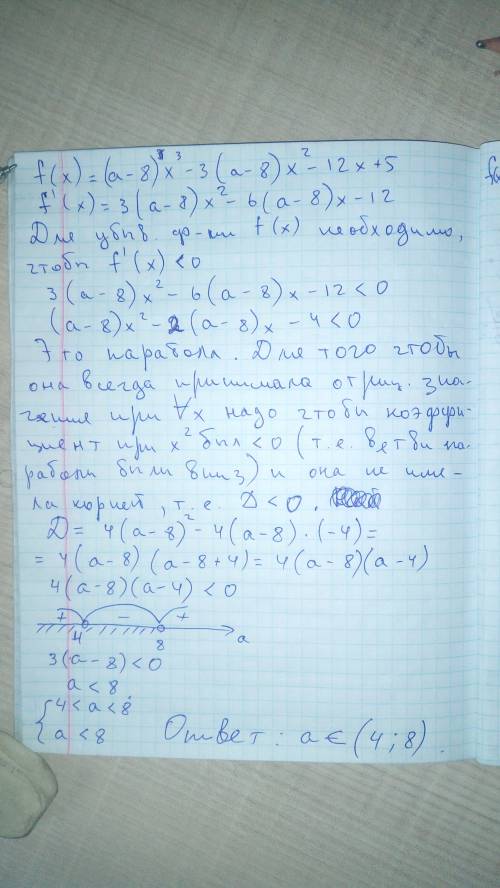 f(x) = (a-8)x³ - 3(a-8)x² - 12x + 5
f'(x) = 3(a-8)x² - 6(a-8)x - 12
Для убыв. ф-ии f(x) необходимо,
чтобы f'(x) < 0
3(a-8)x² - 6(a-8)x - 12 < 0
(a-8)x² - 2(a-8)x - 4 < 0
Это парабола. Для того чтобы
она всегда принимала отриц. зна-
чения при ∀x надо чтобы коэффи-
циент при x² был < 0 (т.е. ветви па-
раболы были вниз) и она не име-
ла корней, т.е. D < 0.
D = 4(a-8)² - 4(a-8)·(-4) =
= 4(a-8)(a-8+4) = 4(a-8)(a-4)
4(a-8)(a-4) < 0
+ - +
4 8 a
3(a-8) < 0
a < 8
{ 4 < a < 8
a < 8 Ответ: a ∈ (4; 8).
f(x